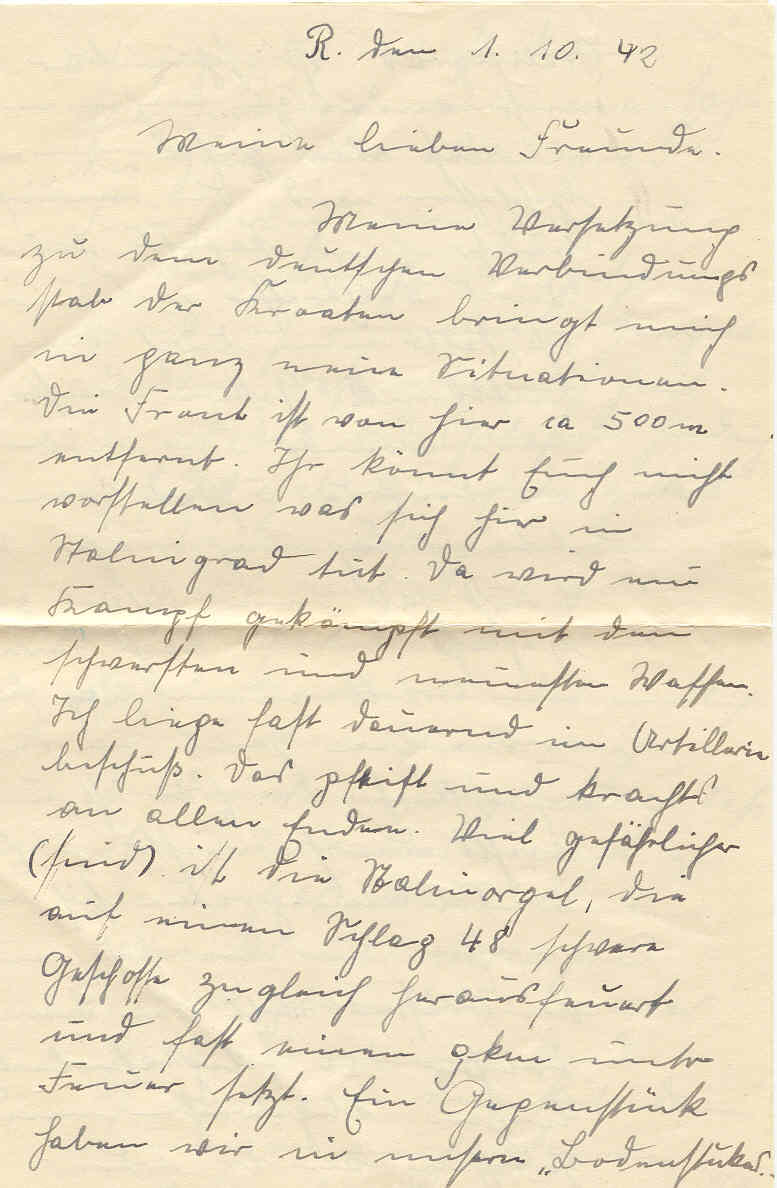 R. den 1. 10. 42
Meine lieben Freunde.
Meine Versetzung
zu dem deutschen Verbindungs
stab der Kroaten bringt mich
in ganz neue Situationen.
Die Front ist von hier ca 500m
entfernt. Ihr könnt Euch nicht
vorstellen was sich hier in
Stalingrad tut. Da wird ein
Kampf gekämpft mit den
schwersten und neuesten Waffen.
Ich liege fast dauernd im Artillerie
beschuß. Das pfeift und krachts
an allen Enden. Viel gefährlicher
(sind) ist die Stalinorgel, die
auf einen Schlag 48 schwere
Geschosse zugleich herausfeuert
und fast einen qkm unter
Feuer setzt. Ein Gegenstück
haben wir in unsern „Bodenstukas".